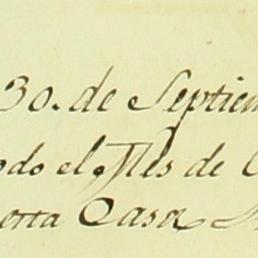 30. de Septiem
odo el Mes de
erta Casa